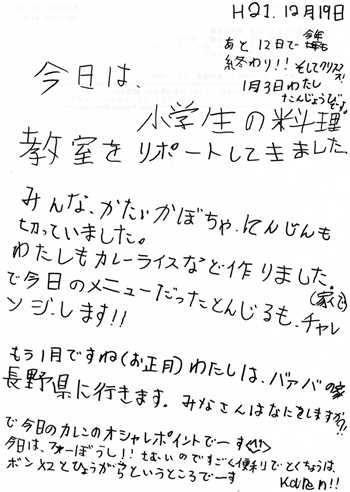 H21.12月19日
あと12日で今年も
終わり!!そしてクリスマス!!
1月3日わたし
たんじょうびです。
今日は、
小学生の料理
教室をリポートしてきました。
みんな、かたいかぼちゃ、にんじんも
切っていました。
わたしもカレーライスなど作りました。(家で)
で今日のメニューだったとんじるも、チャレ
ンジします!!
もう1月ですね(お正月)わたしは、バァバの家
長野県に行きます。みなさんはなにをしますか??!!
で今日のカレンのオシャレポイントでーす
今日は、ファーぼうし!!さむいのですごく便利でとくちょうは、
ボン×2とひょうがらというところでーす Karen!!